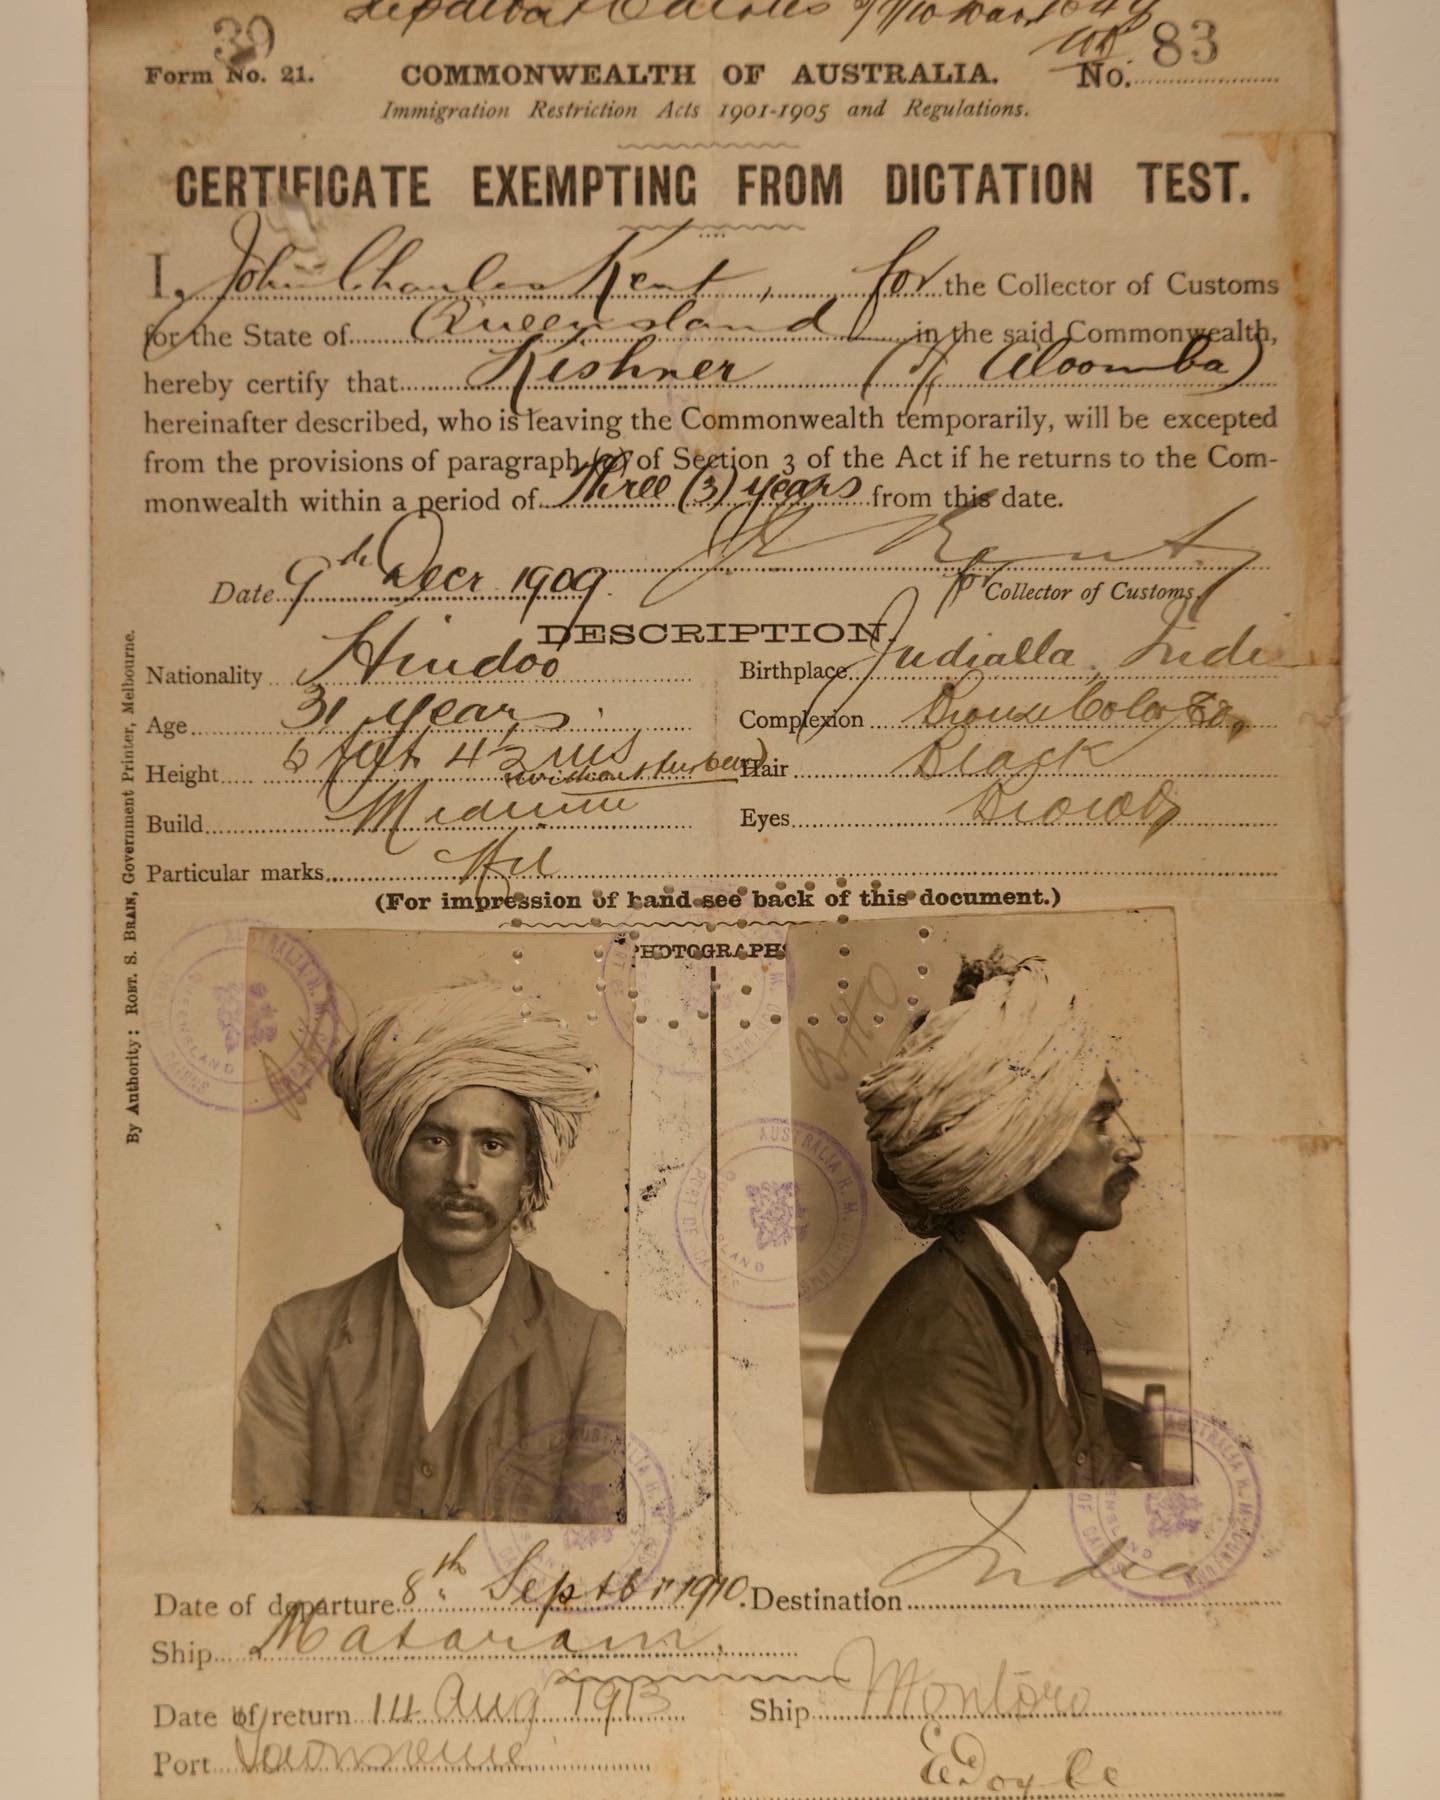 39
Form No. 21.
COMMONWEALTH OF AUSTRALIA.
No. 83
Immigration Restriction Acts 1901-1905 and Regulations.
CERTIFICATE EXEMPTING FROM DICTATION TEST.
I, John Charles Kent, for the Collector of Customs
for the State of Queensland in the said Commonwealth,
hereby certify that Kishner (of Aloomba)
hereinafter described, who is leaving the Commonwealth temporarily, will be excepted
from the provisions of paragraph (a) of Section 3 of the Act if he returns to the Com-
monwealth within a period of Three (3) years from this date.
J C Kent
Date 9th Decr 1909. for Collector of Customs.
DESCRIPTION.
Nationality Hindoo Birthplace India
Age 31 years Complexion
Height 6 feet 4½ ins (without turban) Hair Black
Build Medium Eyes Brown
Particular marks Nil
(For impression of hand see back of this document.)
PHOTOGRAPHS
By Authority: ROBT. S. BRAIN, Government Printer, Melbourne.
AUSTRALIA H. M. CUSTOMS
PORT OF CAIRNS
QUEENSLAND
Date of departure 8th Septbr 1910. Destination India
Ship Mataram.
Date of return 14 Aug 1913 Ship Montoro
Port Townsville
E Doyle